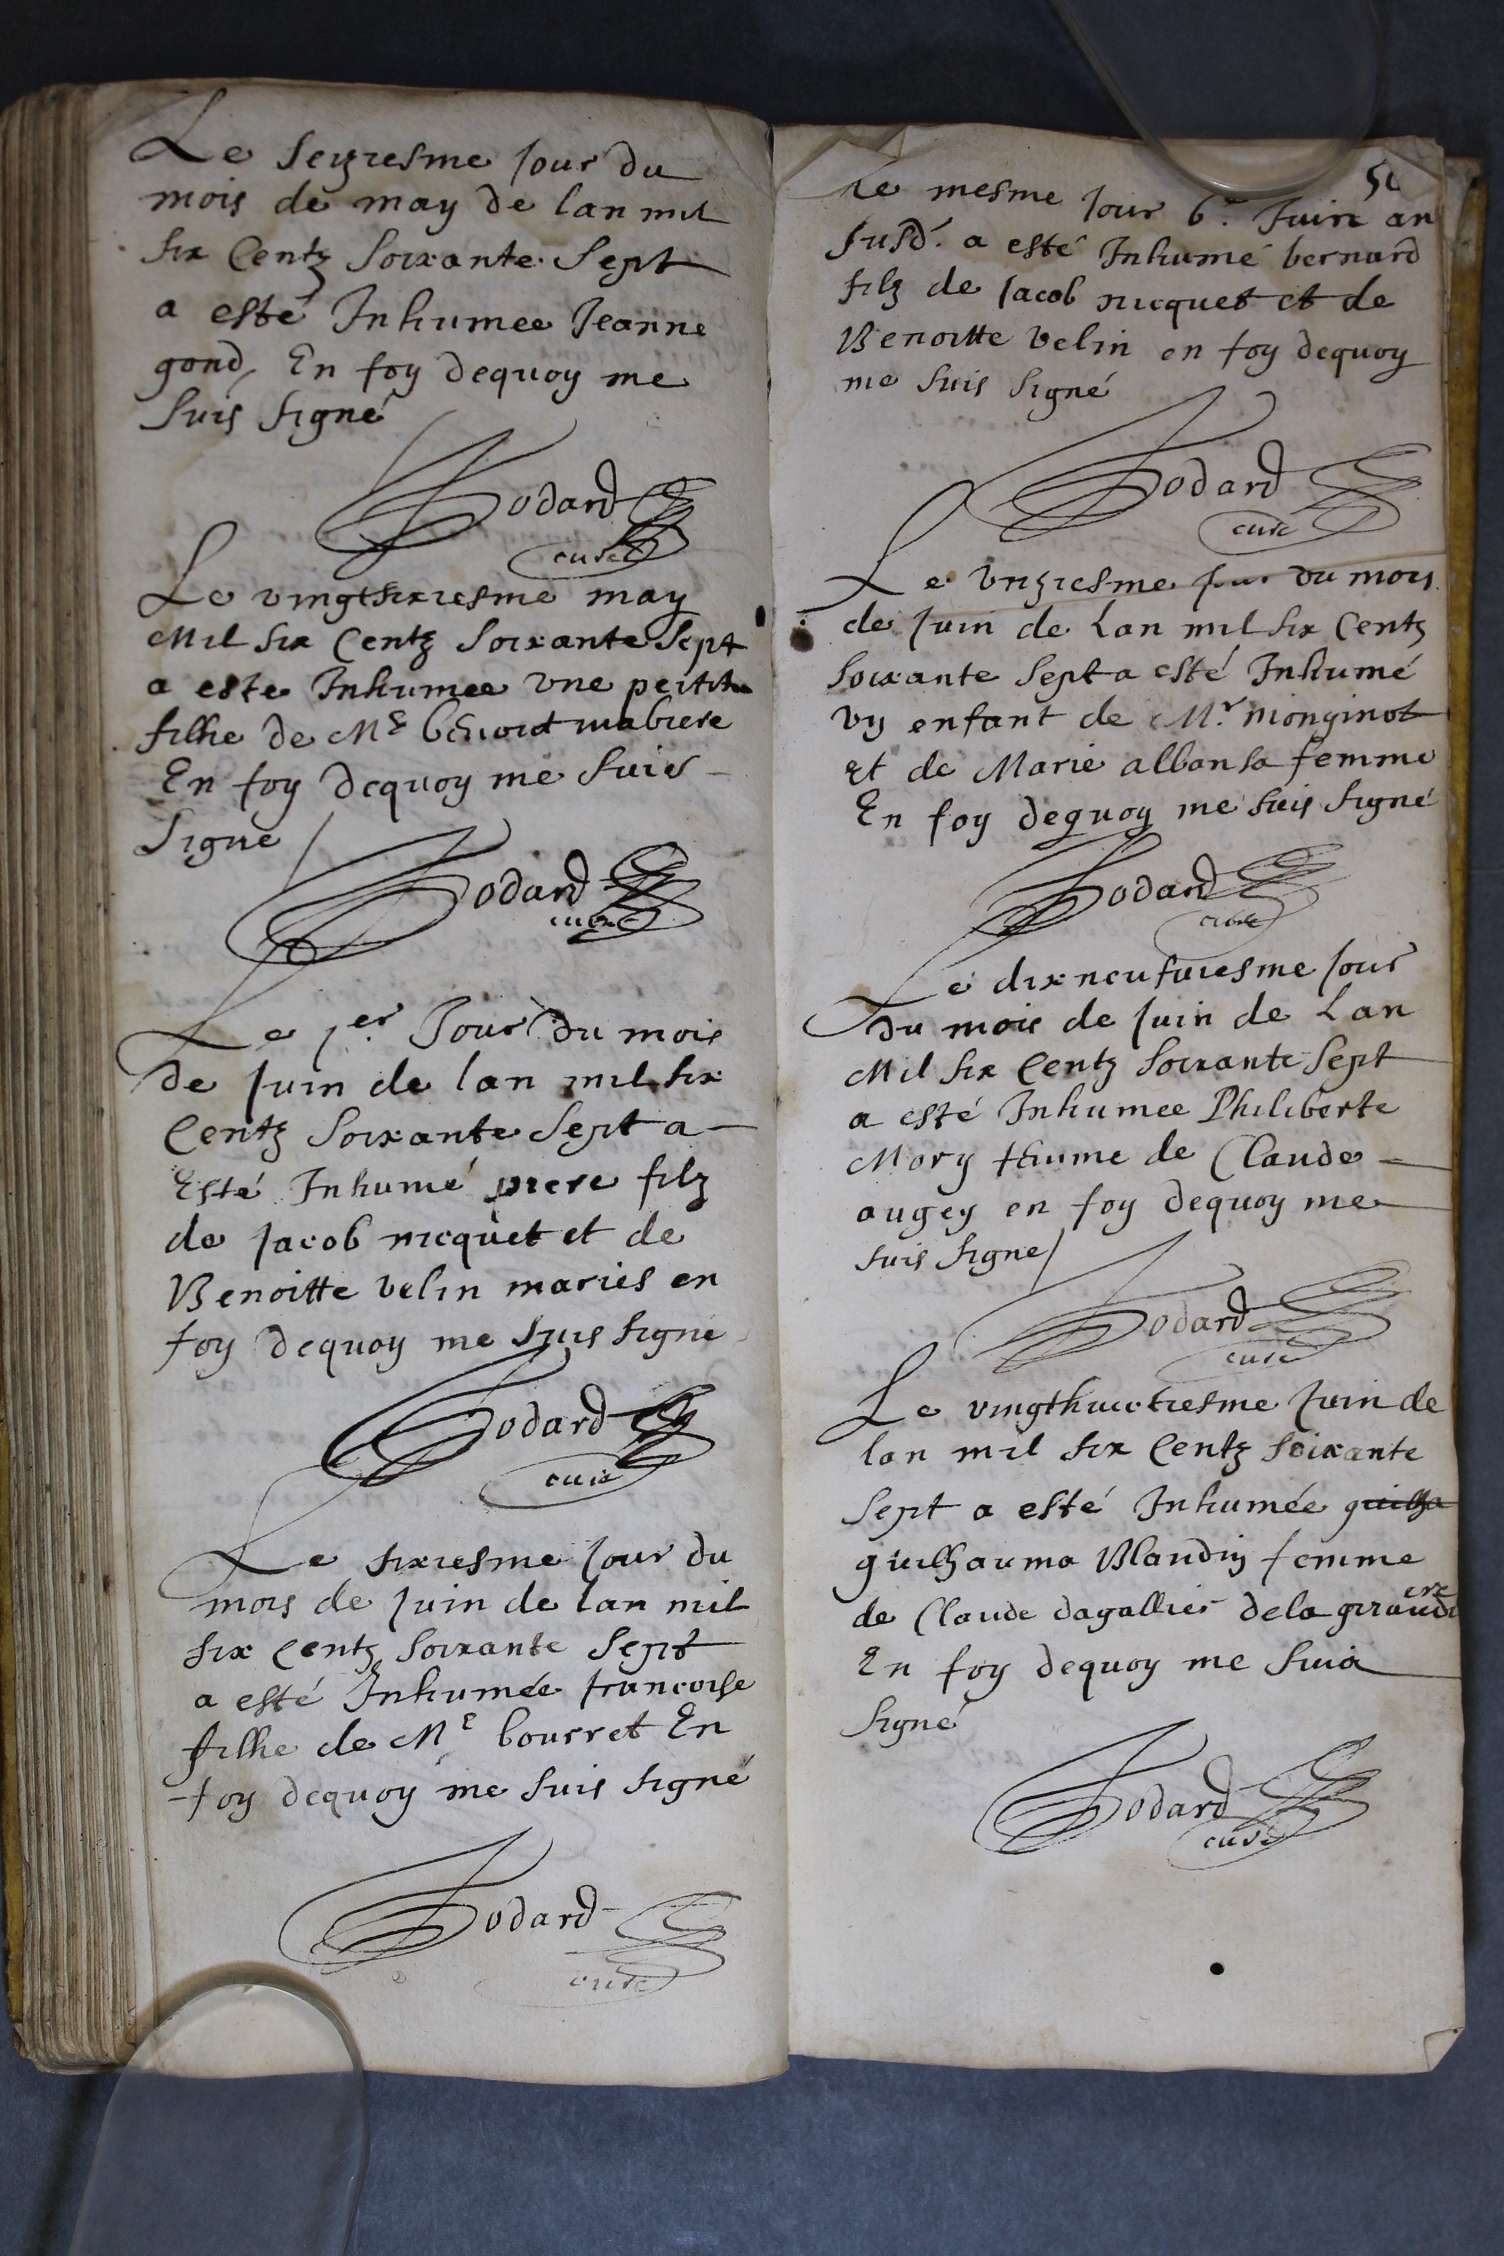 Le seiziesme Jour du
mois de may de lan mil
six Centz soixante Sept
a esté Inhumee Jeanne
gond, En foy dequoy me
suis signé
Godard
curé
Le vingtsixiesme may
Mil six Centz soixante Sept
a este Inhumee Une petitte
filhe de Mr benoict mabiere
En foy dequoy me suis
Signe
Godard
curé
Le 1er Jour du mois
de Juin de lan mil six
Centz soixante Sept a
Esté Inhumé piere filz
de Jacob nicquet et de
Benoitte velin mariés en
foy dequoy me suis signe
Godard
curé
Le sixiesme Jour du
mois de Juin de lan mil
six Centz soixante Sept
a esté Inhumée francoise
filhe de Mr bourret En
foy dequoy me suis signé
Godard
curé
Le mesme Jour 6e Juin an
susd. a esté Inhumé bernard
filz de Jacob nicquet et de
Benoitte velin en foy dequoy
me suis signé
Godard
curé
Le unziesme Jour du mois
de Juin de Lan mil six Centz
soixante Sept a esté Inhumé
un enfant de Mr monginot
et de Marie alban sa femme
En foy dequoy me suis signé
Godard
curé
Le dixneufviesme Jour
du mois de Juin de Lan
Mil six Centz soixante Sept
a esté Inhumee Philiberte
Mory femme de Claude
augey en foy dequoy me
suis signe
Godard
curé
Le vingthuictiesme Juin de
lan mil six Centz soixante
Sept a esté Inhumée guilha
guilhauma Blandin femme
de Claude dagallier dela giraudiere
En foy dequoy me suis
signé
Godard
curé